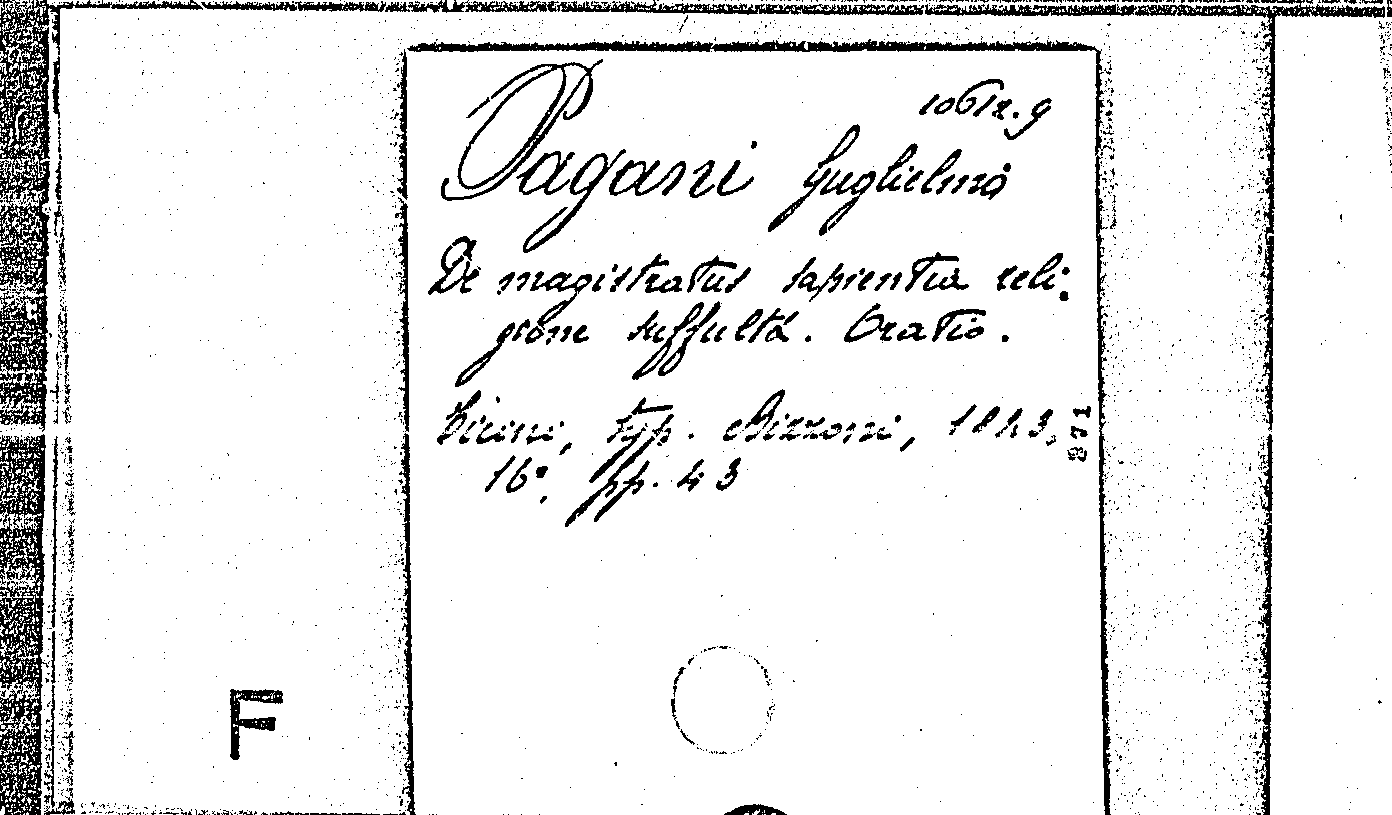 Pagani Guglielmo
De magistratus sapientia reli-
gione suffulta. Oratio.
Ticini, typ. Bizzoni, 1843,
16°, pp. 43
871
F